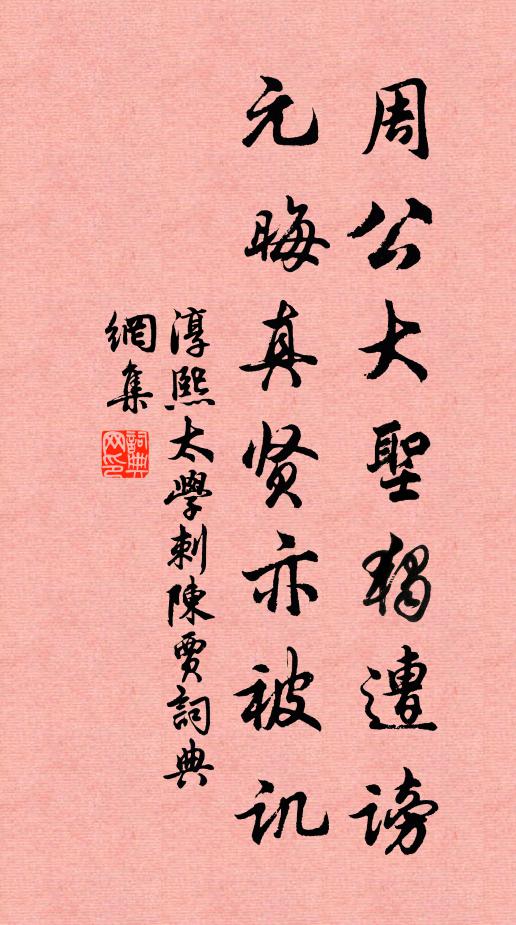 周公大聖獨遭謗
元晦真贤亦被讥
淳熙太學刺陳賈詞典
網集
詞典
网印